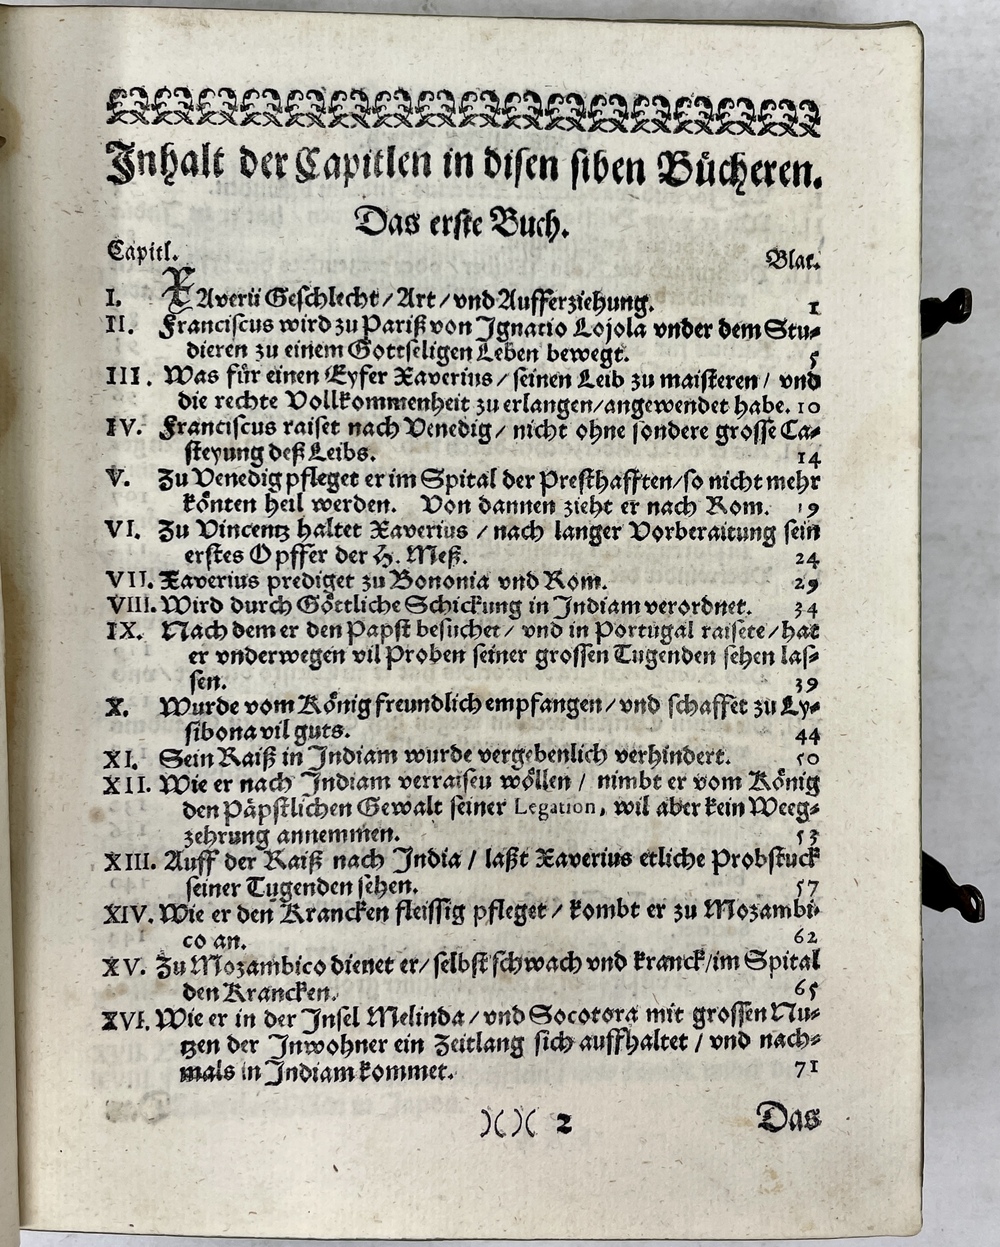 Inhalt der Capitlen in disen siben Bücheren.
Das erste Buch.
Capitl. Blat.
I. XAverii Geschlecht / Art / vnd Aufferziehung. 1
II. Franciscus wird zu Pariß von Ignatio Lojola vnder dem Stu-
dieren zu einem Gottseligen Leben bewegt. 5
III. Was für einen Eyfer Xaverius / seinen Leib zu maisteren / vnd
die rechte Vollkommenheit zu erlangen / angewendet habe. 10
IV. Franciscus raiset nach Venedig / nicht ohne sondere grosse Ca-
steyung deß Leibs. 14
V. Zu Venedig pfleget er im Spital der Presthafften / so nicht mehr
könten heil werden. Von dannen zieht er nach Rom. 19
VI. Zu Vincentz haltet Xaverius / nach langer Vorberaitung sein
erstes Opffer der H. Meß. 24
VII. Xaverius prediget zu Bononia vnd Rom. 29
VIII. Wird durch Göttliche Schickung in Indiam verordnet. 34
IX. Nach dem er den Papst besuchet / vnd in Portugal raisete / hat
er vnderwegen vil Proben seiner grossen Tugenden sehen las-
sen. 39
X. Wurde vom König freundlich empfangen / vnd schaffet zu Ly-
sibona vil guts. 44
XI. Sein Raiß in Indiam wurde vergebenlich verhindert. 50
XII. Wie er nach Indiam verraisen wöllen / nimbt er vom König
den Päpstlichen Gewalt seiner Legation, wil aber kein Weeg-
zehrung annemmen. 53
XIII. Auff der Raiß nach India / laßt Xaverius etliche Probstuck
seiner Tugenden sehen. 57
XIV. Wie er den Krancken fleissig pfleget / kombt er zu Mozambi-
co an. 62
XV. Zu Mozambico dienet er / selbst schwach vnd kranck / im Spital
den Krancken. 65
XVI. Wie er in der Insel Melinda / vnd Socotora mit grossen Nu-
tzen der Inwohner ein Zeitlang sich auffhaltet / vnd nach-
mals in Indiam kommet. 71
)( )( 2 Das